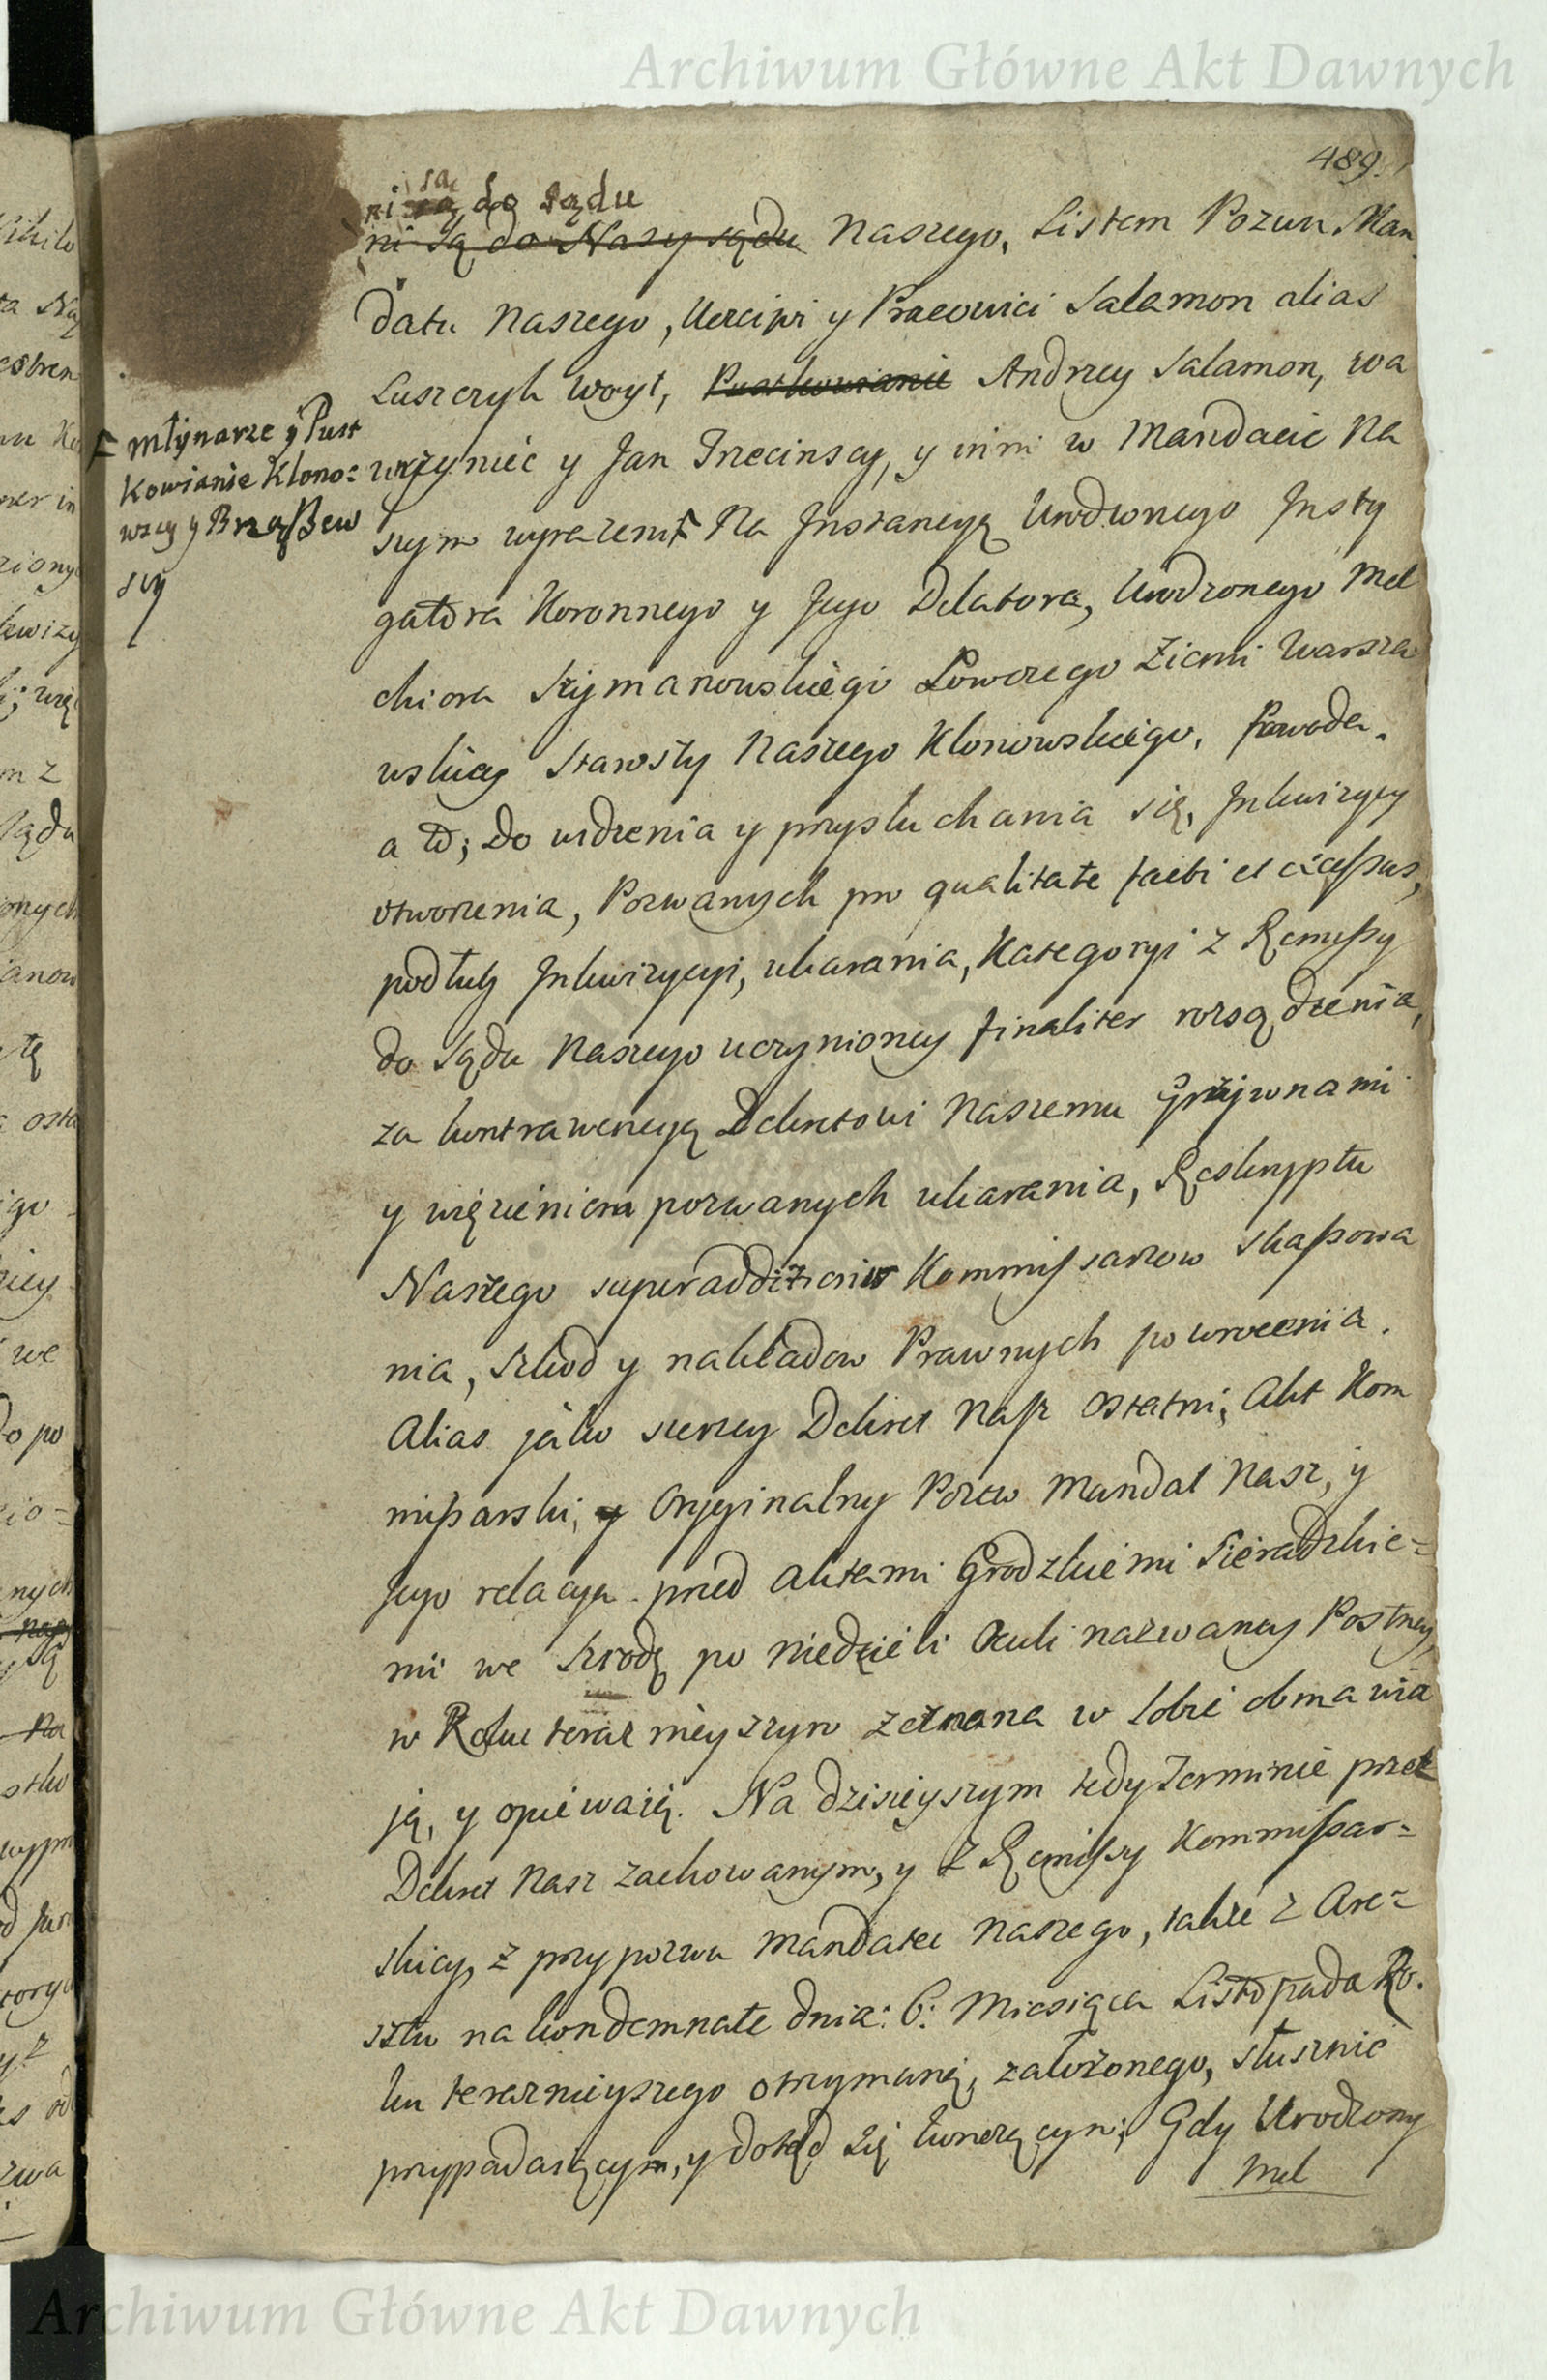 Archiwum Główne Akt Dawnych
489.
są
ni są do sądu
ni są do Naszy sądu Naszego, Listem Pozwu Man
datu Naszego, Uczciwi y Pracowici Salamon alias
Luszczyk Woyt, Pustkowianie Andrzey Salamon, Wa
wrzyniec y Jan Trzecinscy, y inni w Mandacie Na
szym wyrazeni Na Jnstancyą Urodzonego Jnsty
gatora Koronnego y Jego Delatora, Urodzonego Mel
chiora Szymanowskiego Łowczego Ziemi Warsza
wskiey Starosty Naszego Klonowskiego, Powoda.
a to; Do widzenia y przysłuchania się, Jnkwizycyy
otworzenia, Pozwanych pro qualitate facti et excessus,
podług Jnkwizycyi, ukarania, Kategoryi z Remissy
do Sądu Naszego uczynioney finaliter rozsądzenia,
za kontrawencyą Dekretowi Naszemu Grzywnami
y więzieniem pozwanych ukarania, Reskryptu
Naszego superadditionis Kommissarzow skassowa
nia, szkod y nakładow Prawnych powrocenia.
Alias jako szerzey Dekret Nasz ostatni, Akt Kom
missarski, y Oryginalny Pozew Mandat Nasz, y
Jego relacya przed Aktami Grodzkiemi Sieradzkie=
mi we Srzodę po Niedzieli Oculi nazwaney Postney,
w Roku teraznieyszym zeznana w sobie obmawia
ją, y opiewaią. Na dzisieyszym tedy Terminie przez
Dekret Nasz zachowanym, y z Remissy Kommissar=
skiey, z przypozwu Mandatu Naszego, także z Are=
sztu na kondemnatę dnia: 6: Miesiąca Listopada Ro.
ku teraznieyszego otrzymaną, założonego, słusznie
przypadaiącym, y dotąd się konczącym, Gdy Urodzony
Mel
Młynarze y Pust
Kowianie Klono=
wscy y Brąßew
scy
Archiwum Główne Akt Dawnych